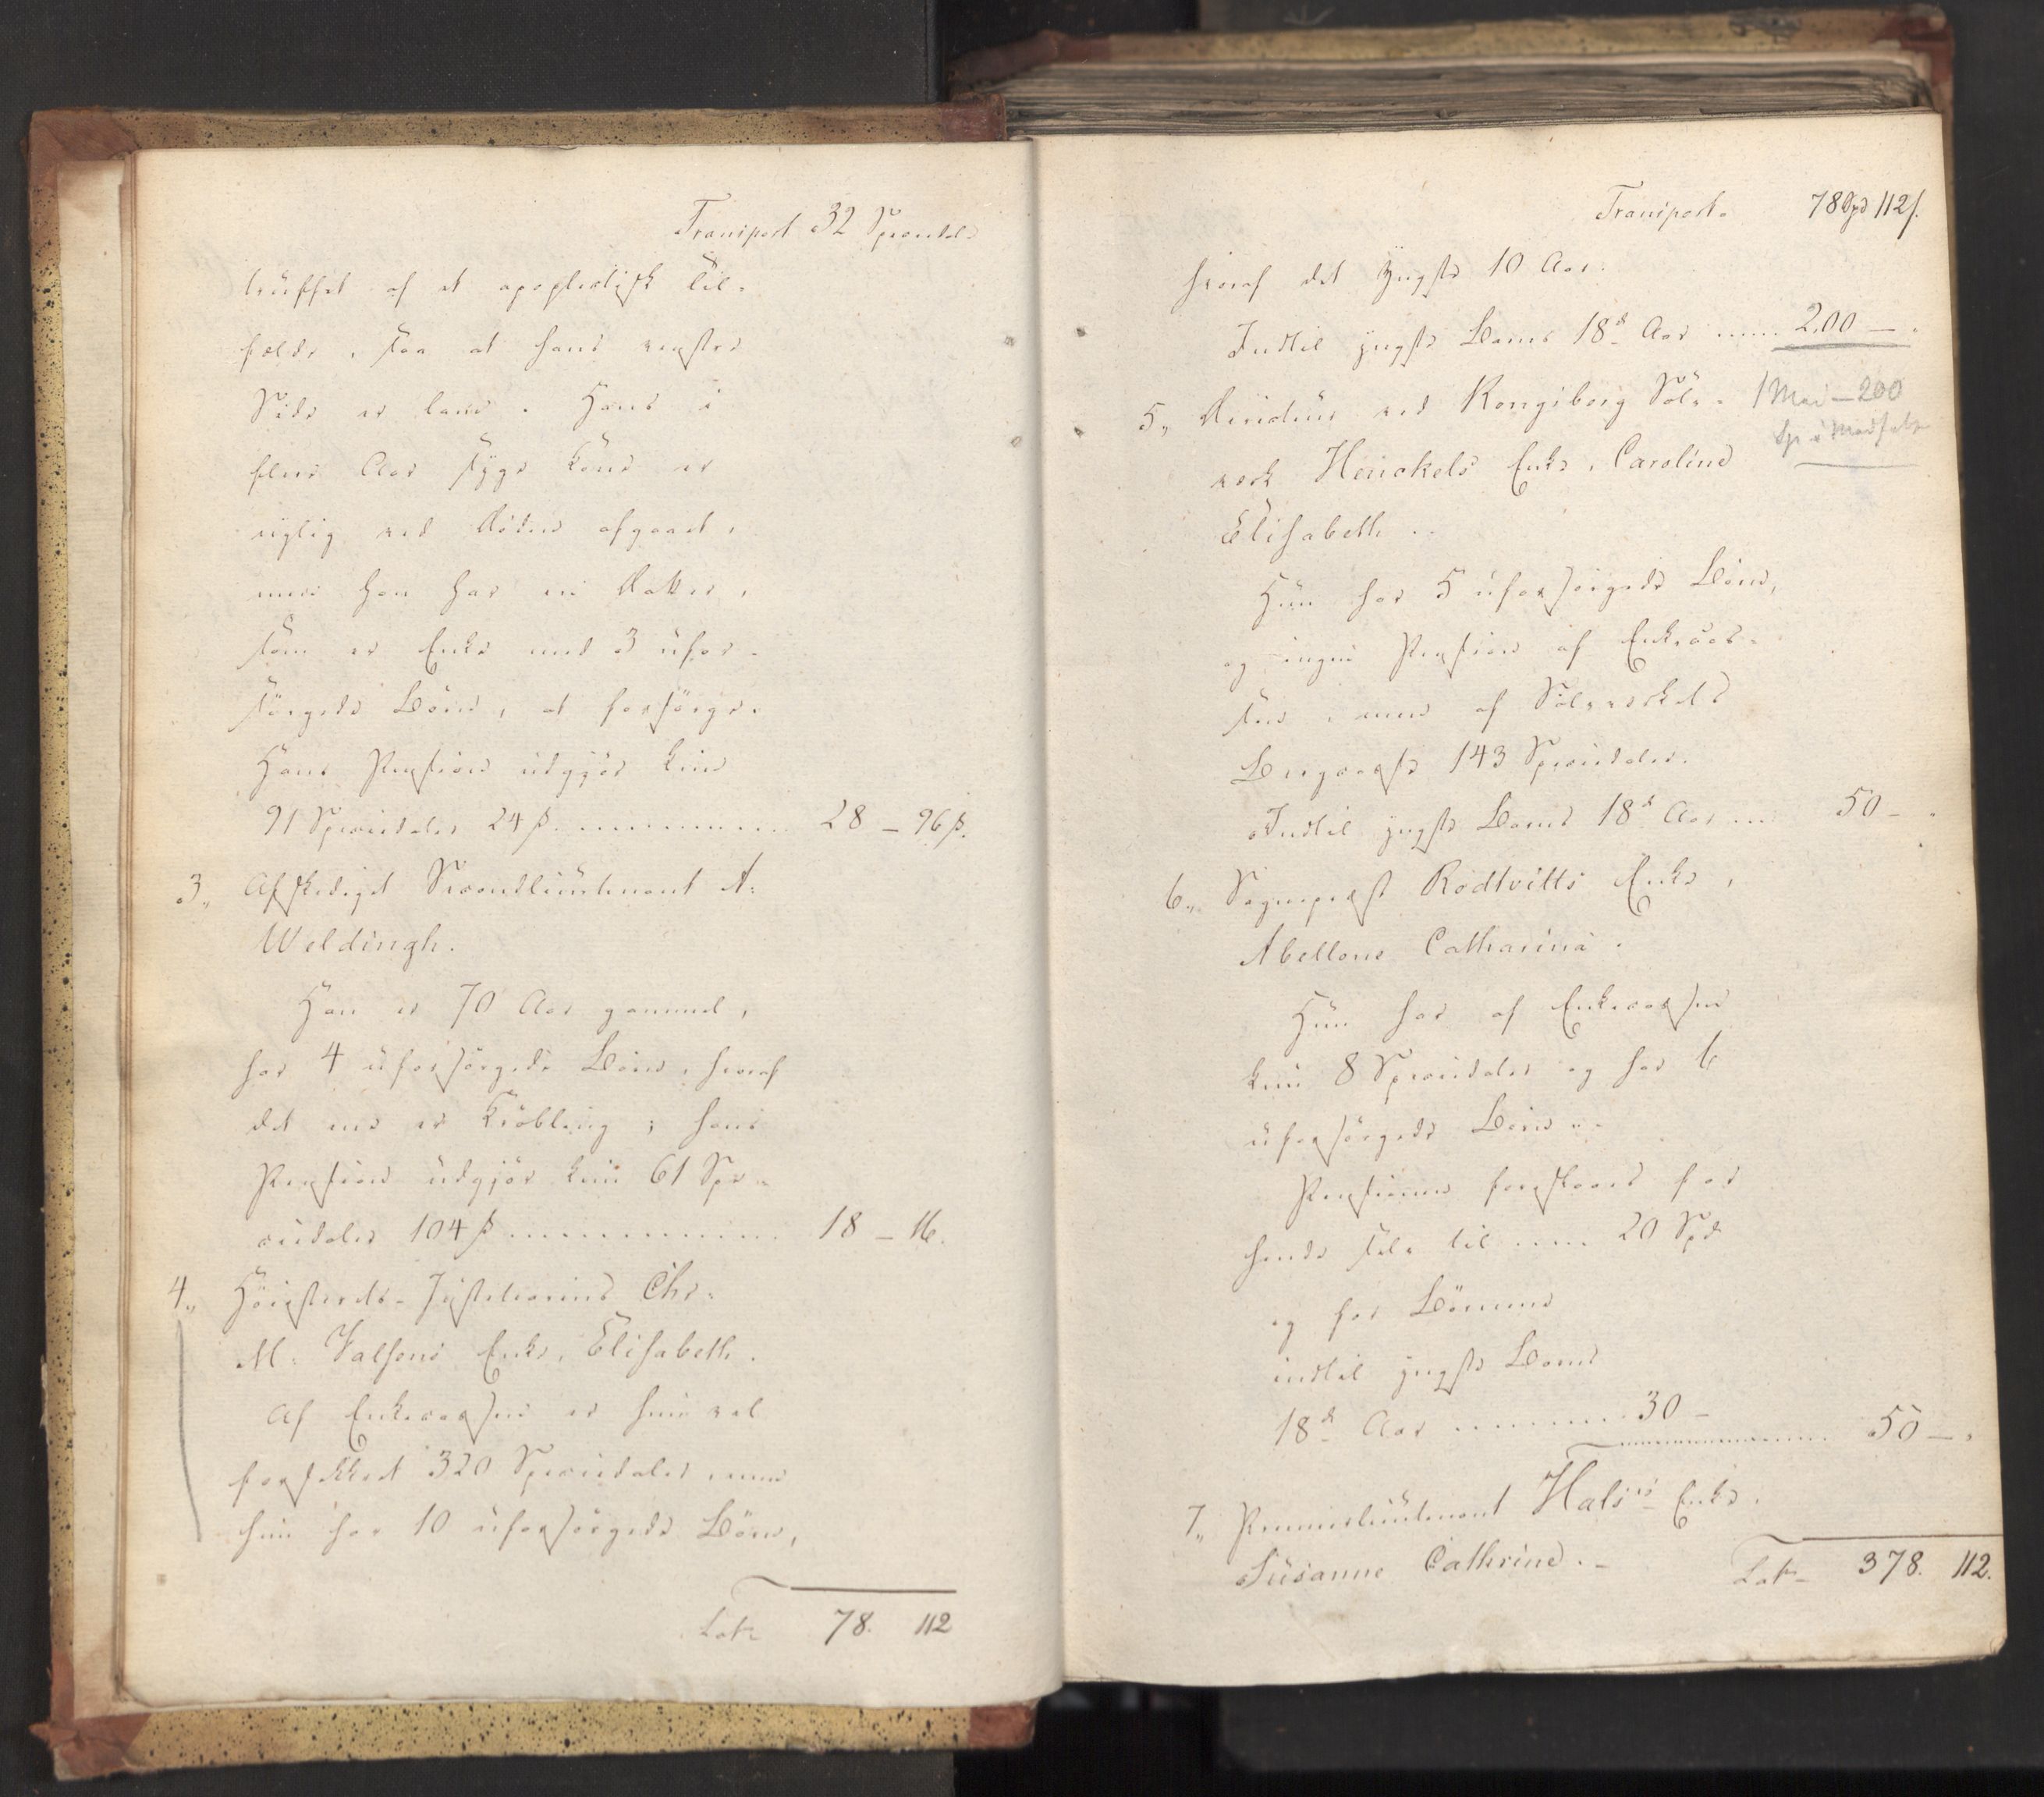 Transport 32 Speciedal.
truffet af et apoplectisk Til-
fælde, saa at hans venstre
Side er lam. Hans i
flere Aar syge Kone er
nylig ved Døden afgaaet,
men han har en Datter,
som er Enke med 3 ufor-
sörgede Börn, at forsörge.
Hans Pension udgjör kun
91 Speciedaler 24 ß. .......... 28 - 96 ß.
3,, Afskediget Secondlieutenant A:
Weldingh.
Han er 70 Aar gammel,
har 4 uforsörgede Börn, hvoraf
det ene er Kröbling; hans
Pension udgjör kun 61 Spe-
ciedaler 104 ß .......... 18 - 16.
4,, Höiesterets-Justitiarius Chr.
M. Falsens Enke, Elisabeth.
Af Enkecassen er hun vel
forsikkret 320 Speciedaler, men
hun har 10 uforsörgede Börn,
Lat. 78. 112
Transport. 78 Spd 112 ß.
hvoraf det yngste 10 Aar.
Indtil yngste Barns 18de Aar ..... 200 -
5,, Directeur ved Kongsberg Sölv-
1 Mai - 200
værk Henckels Enke, Caroline
Elisabeth ..
Hun har 5 uforsörgede Börn,
og ingen Pension af Enkecas-
sen, men af Sölvværkets
Bergcasse 143 Speciedaler.
Indtil yngste Barns 18de Aar .... 50 -
6,, Sogneprest Rödtvitts Enke,
Abellone Catharina.
Hun har af Enkecassen
kun 8 Speciedaler og har 6
uforsörgede Börn..
Pensionen foreslaaes for
hende selv til ..... 20 Spd
og for Börnene
indtil yngste Barns
18de Aar .......... 30 -
.......... 50 -
7,, Premierlieutenant Hals's Enke,
Susanne Cathrine. -
Lat. 378. 112.